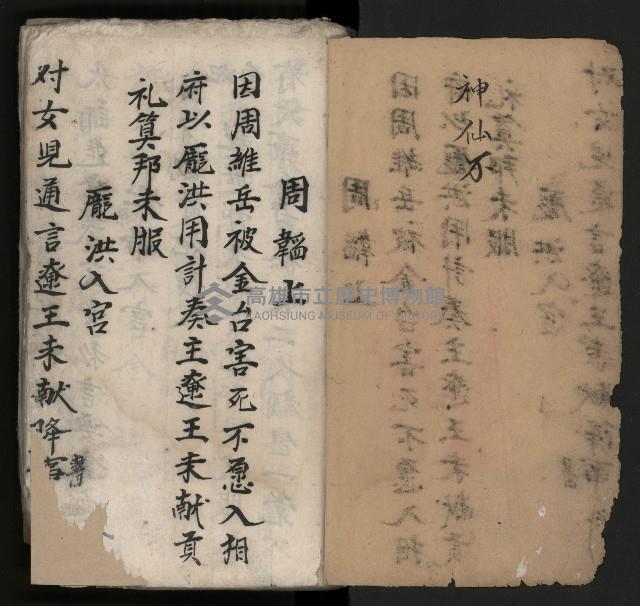 神仙万
周韞上
因周雄岳被金台害死不愿入相
府以龐洪用計奏主遼王未献貢
礼箕邦未服
龐洪入宮
对女児通言遼王未献降寫書
高雄市立歷史博物館
KAOHSIUNG MUSEUM OF HISTORY